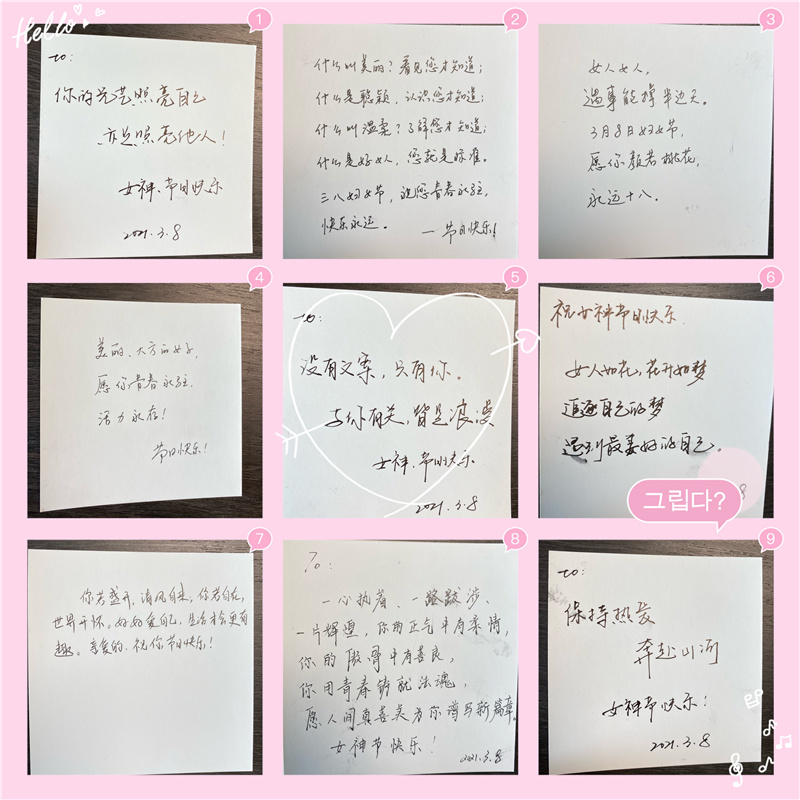 Hello
1
to:
你的光芒照亮自己
亦足照亮他人!
女神、节日快乐
2021.3.8
2
什么叫美丽?看见您才知道;
什么是聪颖,认识您才知道;
什么叫温柔?了解您才知道;
什么是好女人,您就是标准。
三八妇女节,祝您青春永驻,
快乐永远。 —节日快乐!
3
女人女人,
遇事能撑半边天。
3月8日妇女节,
愿你颜若桃花,
永远十八。
4
美丽、大方的女子,
愿你青春永驻.
活力永存!
节日快乐!
5
to:
没有文案,只有你。
与你有关,皆是浪漫
女神、节日快乐
2021.3.8
6
祝女神节日快乐.
女人如花,花开如梦
追逐自己的梦
遇到最美好的自己。
8
그립다?
7
你若盛开,清风自来,你若自在,
世界开怀。好好爱自己,生活才会更有
趣。亲爱的,祝你节日快乐!
8
To:
一心执着、一路跋涉、
一片辉煌,你的正气中有柔情,
你的傲骨中有善良,
你用青春铸就法魂,
愿人间真善美为你谱写新篇章。
女神节快乐!
2021.3.8
9
to:
保持热爱
奔赴山河
女神节快乐!
2021.3.8